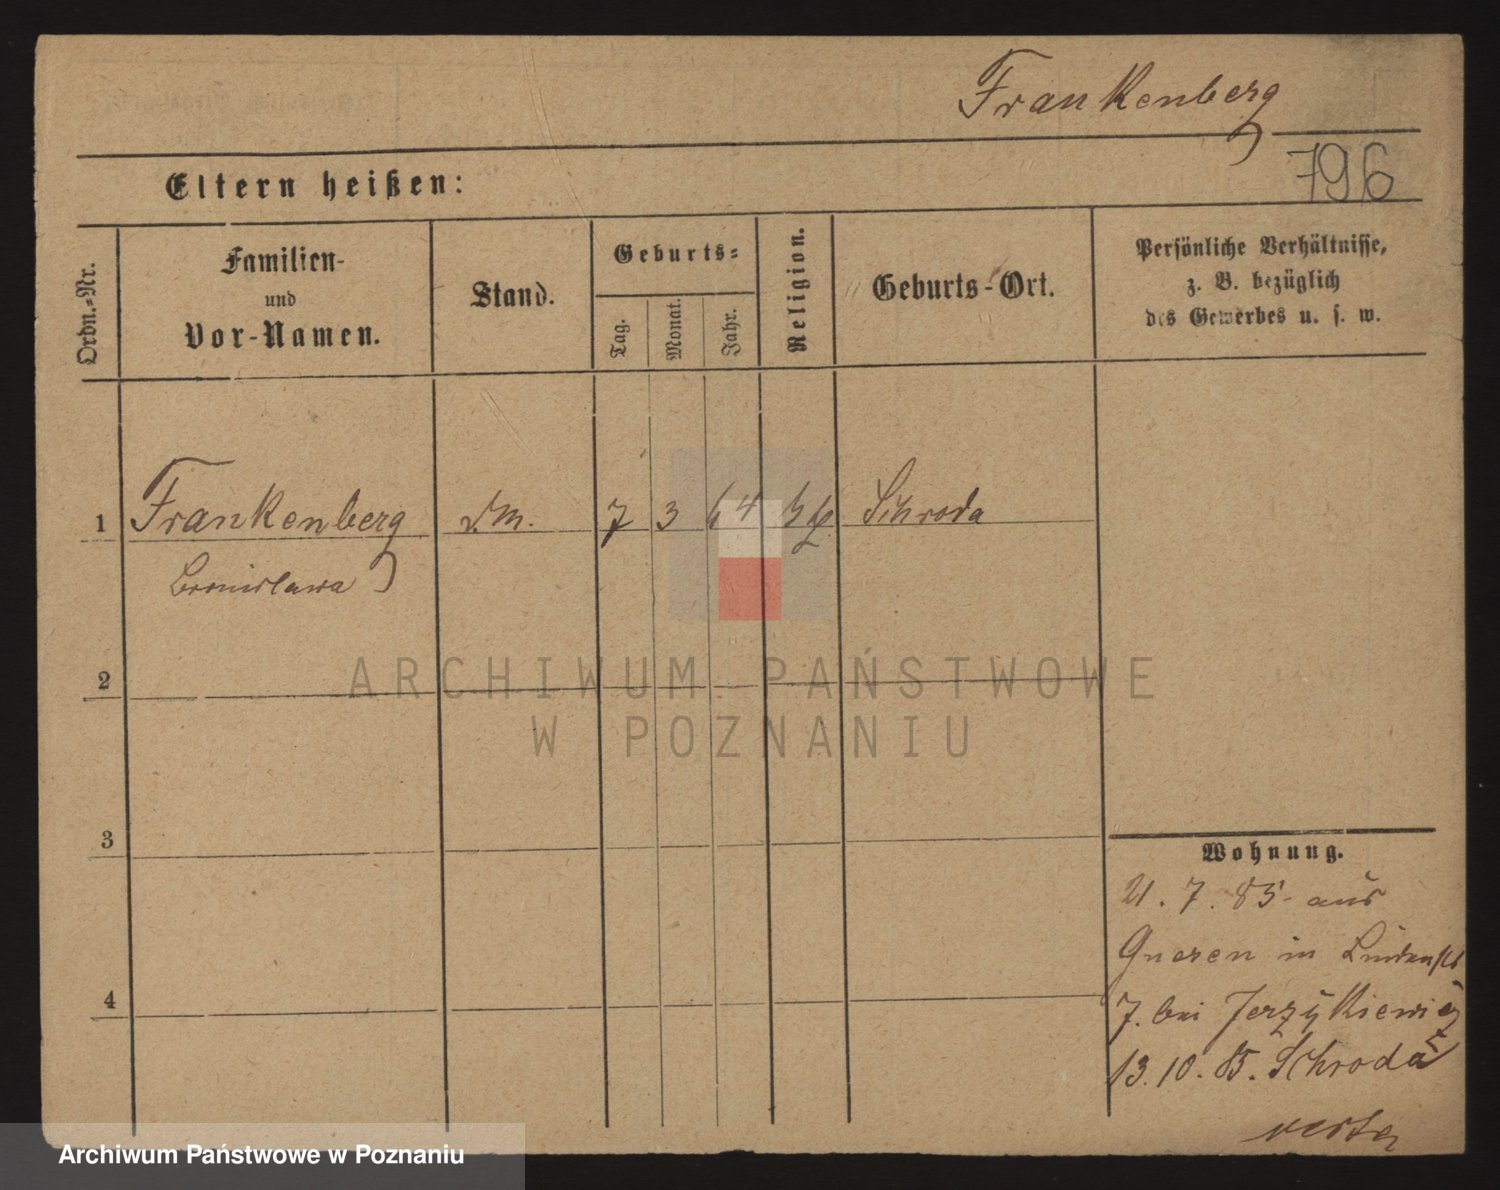 Frankenberg
796
Eltern heißen:
Ordn.=Nr.
Familien-
und
Vor-Namen.
Stand.
Geburts=
Tag.
Monat.
Jahr.
Religion.
Geburts-Ort.
Persönliche Verhältnisse,
z. B. bezüglich
des Gewerbes u. s. w.
1 Frankenberg D.M. 7 3 64 Schroda
Bronislawa
2
3
4
Wohnung.
21. 7. 85 aus
Gnesen in Lindenstr
7. bei Jerzykiewicz
13. 10. 85. Schroda
ARCHIWUM PAŃSTWOWE
W POZNANIU
Archiwum Państwowe w Poznaniu